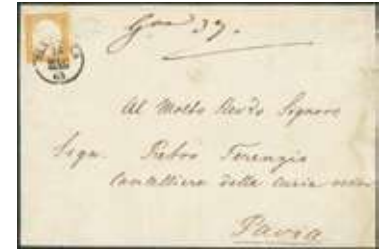 63
37.
Al Molto Revdo Signore
Sign. Pietro Terenzio
Cancelliere della Curia
Pavia